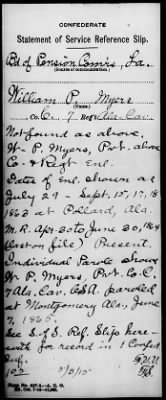 CONFEDERATE
Statement of Service Reference Slip.
Bd. of Pension Comrs, La.
(Source of communication.)
William P. Myers
(Name)
Co. C. 7 Reg't Ala. Cav.
Not found as above.
W. P. Myers, Pvt. above
Co. & Regt. Enl.
Dates of Enl. shown as
July 29 - Sept. 15, 17, 18
1863 at Pollard, Ala.
M. R. Apr 30 to June 30, 1864
(last on file) Present.
Individual Parole shows
W. P. Myers, Pvt. Co. C.
7 Ala. Cav. C.S.A. paroled
at Montgomery Ala, June
7, 1865.
See S. of S. Ref. Slip here-
with for record in 1 Confed
Inf.